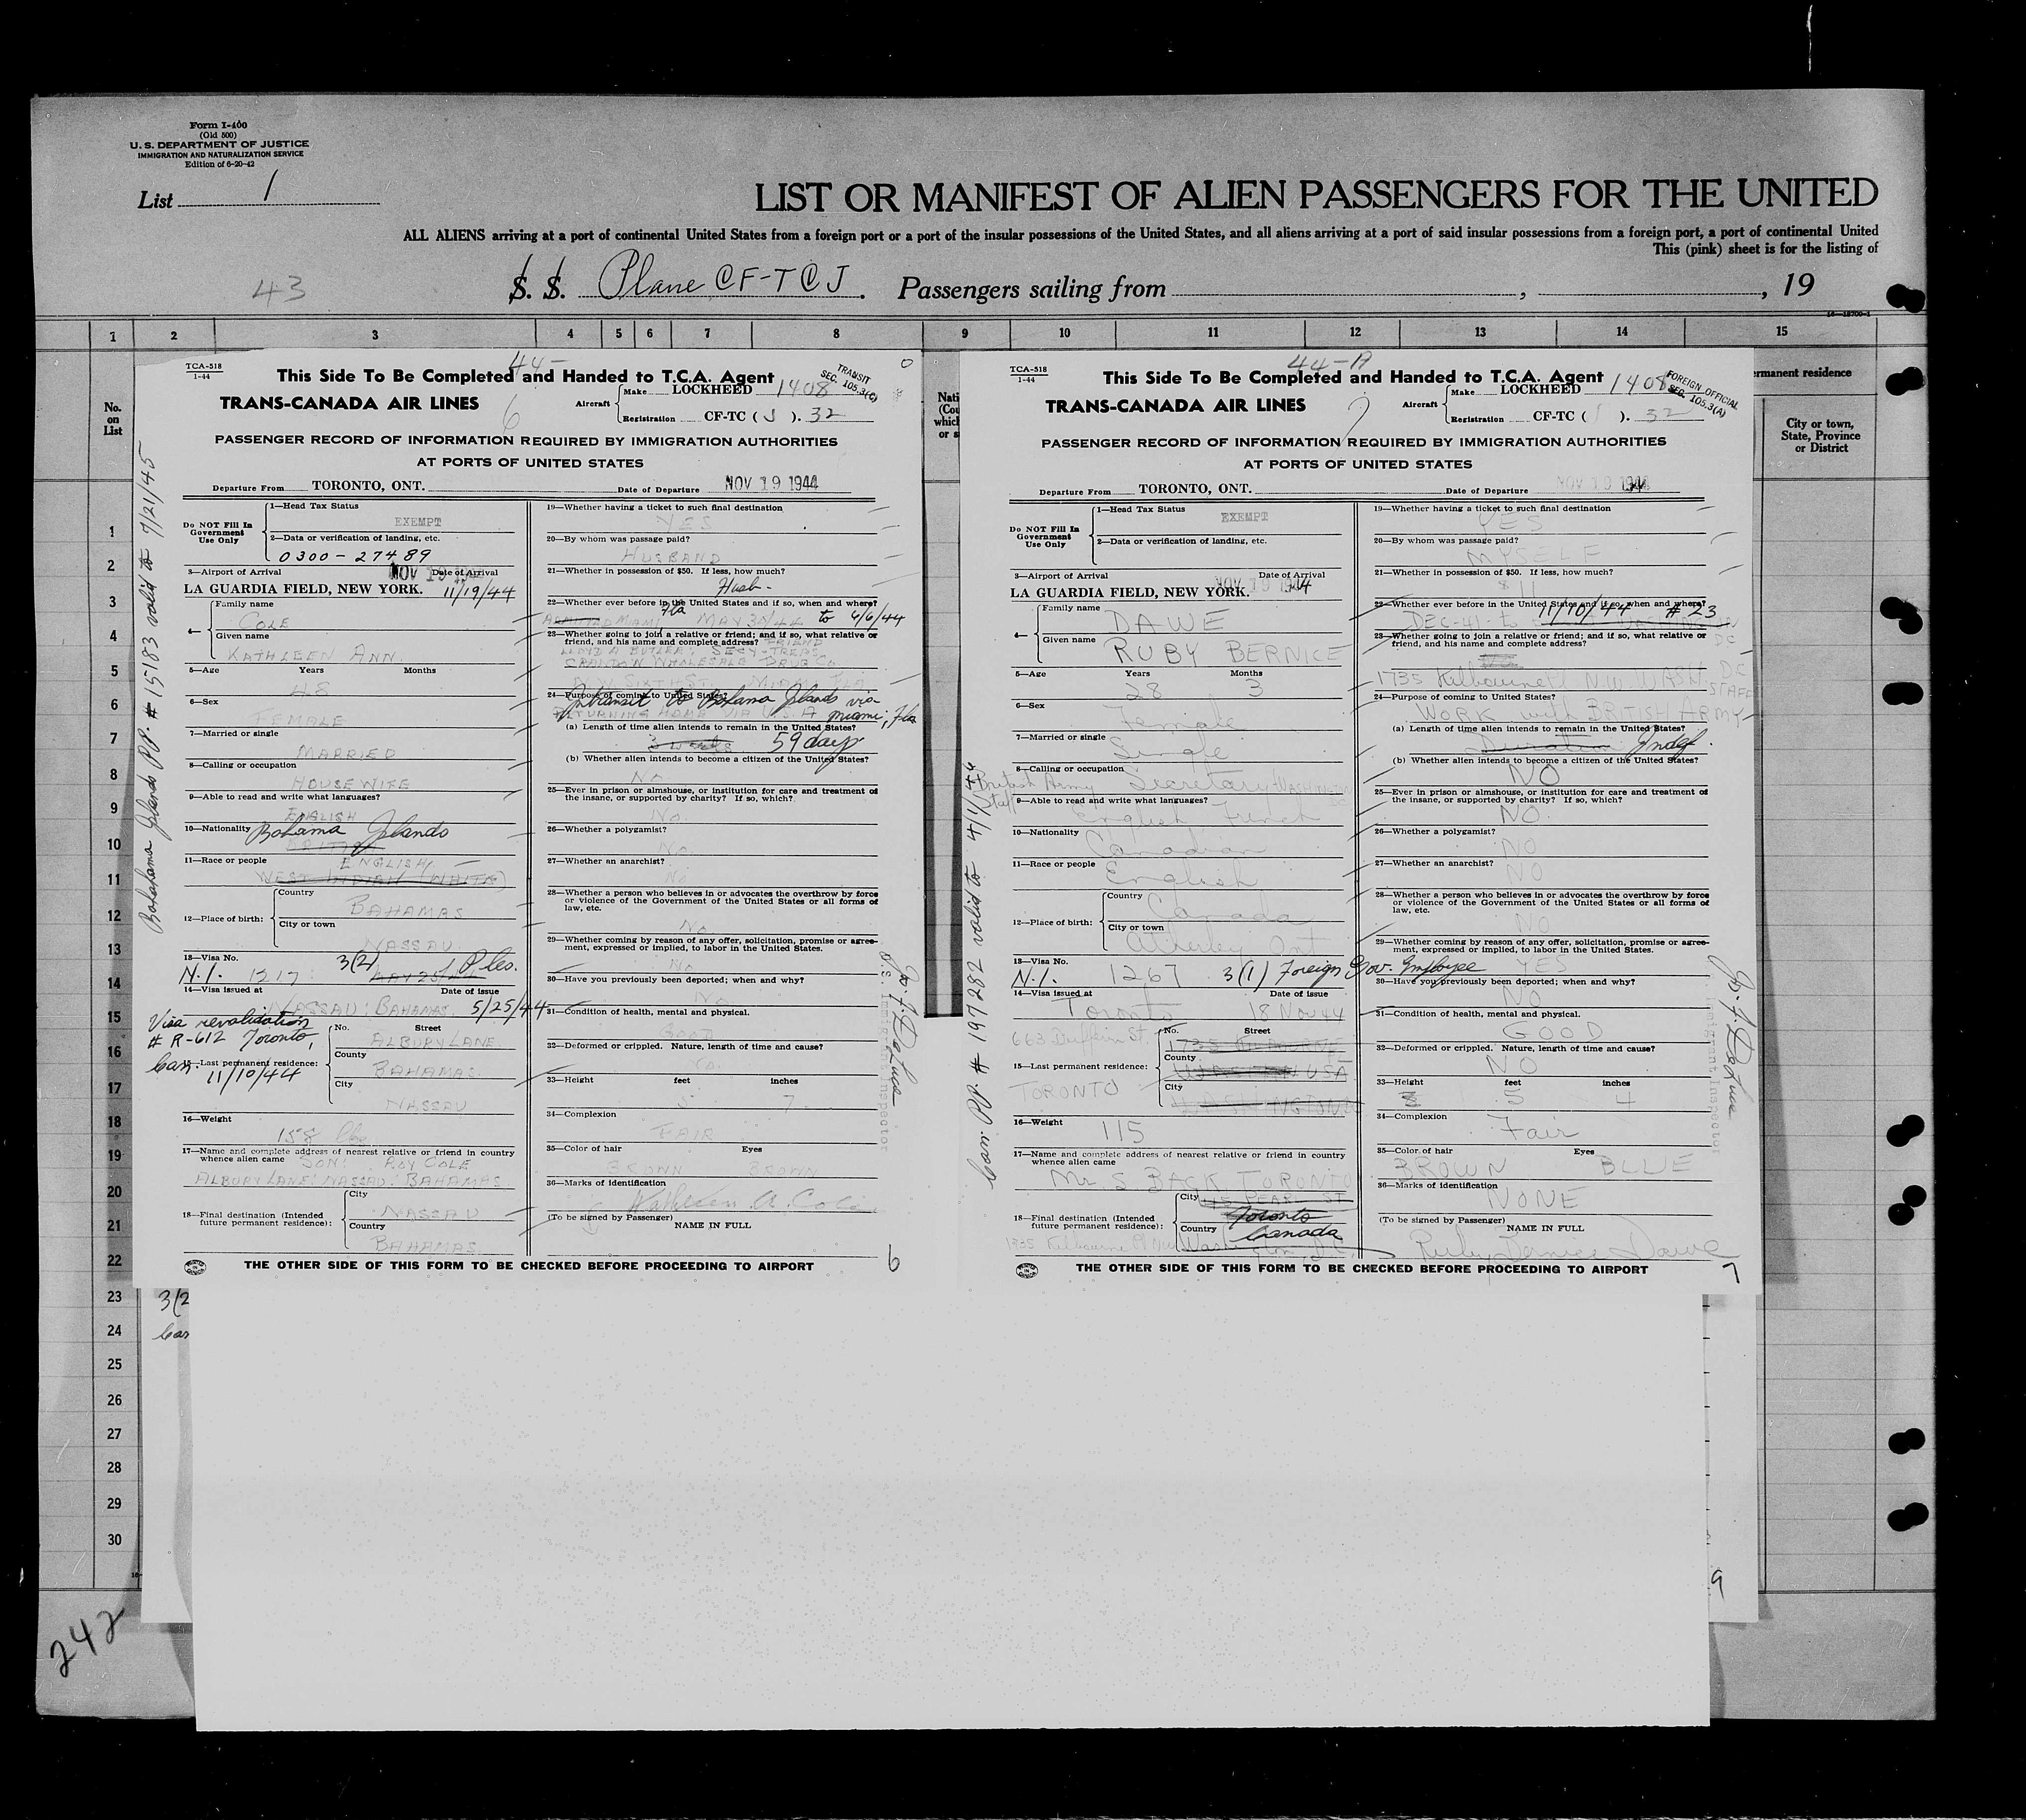 Form I-400
(Old 500)
U. S. DEPARTMENT OF JUSTICE
IMMIGRATION AND NATURALIZATION SERVICE
Edition of 6-20-42
List 1
LIST OR MANIFEST OF ALIEN PASSENGERS FOR THE UNITED
ALL ALIENS arriving at a port of continental United States from a foreign port or a port of the insular possessions of the United States, and all aliens arriving at a port of said insular possessions from a foreign port, a port of continental United
This (pink) sheet is for the listing of
43
S. S. Plane CF-TCJ. Passengers sailing from , , 19
1 2 3 4 5 6 7 8 9 10 11 12 13 14 15
No. on List
rmanent residence
City or town, State, Province or District
TCA-518
1-44
44-
This Side To Be Completed and Handed to T.C.A. Agent
TRANSIT SEC. 105.3(C)
TRANS-CANADA AIR LINES 6
Aircraft Make LOCKHEED 1408
Registration CF-TC (J). 32
PASSENGER RECORD OF INFORMATION REQUIRED BY IMMIGRATION AUTHORITIES
AT PORTS OF UNITED STATES
Departure From TORONTO, ONT. Date of Departure NOV 19 1944
Do NOT Fill In Government Use Only
1—Head Tax Status
EXEMPT
2—Data or verification of landing, etc.
0300-27489
3—Airport of Arrival Date of Arrival
LA GUARDIA FIELD, NEW YORK. 11/19/44
4— Family name
COLE
Given name
KATHLEEN ANN
5—Age Years Months
48
6—Sex
FEMALE
7—Married or single
MARRIED
8—Calling or occupation
HOUSEWIFE
9—Able to read and write what languages?
ENGLISH
10—Nationality Bahama Islands
BRITISH
11—Race or people ENGLISH
WEST INDIAN (WHITE)
12—Place of birth: Country
BAHAMAS
City or town
NASSAU
13—Visa No. 3(2)
N.I. 1217 MAY 25
14—Visa issued at Date of issue
NASSAU: BAHAMAS 5/25/44
Visa revalidation
# R-612 Toronto,
Can. 11/10/44
15—Last permanent residence: No. Street
ALBURY LANE
County
BAHAMAS
City
NASSAU
16—Weight
158 lbs
17—Name and complete address of nearest relative or friend in country whence alien came
SON: ROY COLE
ALBURY LANE: NASSAU: BAHAMAS
18—Final destination (Intended future permanent residence): City
NASSAU
Country
BAHAMAS
19—Whether having a ticket to such final destination
YES
20—By whom was passage paid?
HUSBAND
21—Whether in possession of $50. If less, how much?
Husb.
22—Whether ever before in the United States and if so, when and where?
MIAMI Fla MAY 30/44 to 6/6/44
23—Whether going to join a relative or friend; and if so, what relative or friend, and his name and complete address? FRIEND
LLOYD A BUTLER: SECY-TREAS.
CRANDON WHOLESALE DRUG CO.
24—Purpose of coming to United States?
Intransit to Bahama Islands via
RETURNING HOME VIA U.S.A. Miami, Fla
(a) Length of time alien intends to remain in the United States?
3 weeks 59 days
(b) Whether alien intends to become a citizen of the United States?
No
25—Ever in prison or almshouse, or institution for care and treatment of the insane, or supported by charity? If so, which?
No.
26—Whether a polygamist?
No.
27—Whether an anarchist?
No
28—Whether a person who believes in or advocates the overthrow by force or violence of the Government of the United States or all forms of law, etc.
No
29—Whether coming by reason of any offer, solicitation, promise or agreement, expressed or implied, to labor in the United States.
No
30—Have you previously been deported; when and why?
No
31—Condition of health, mental and physical.
GOOD
32—Deformed or crippled. Nature, length of time and cause?
No
33—Height feet inches
5 7
34—Complexion
FAIR
35—Color of hair Eyes
BROWN BROWN
36—Marks of identification
Kathleen A. Cole
(To be signed by Passenger) NAME IN FULL
6
THE OTHER SIDE OF THIS FORM TO BE CHECKED BEFORE PROCEEDING TO AIRPORT
Bahama Islands PP. # 15183 valid to 7/21/45
TCA-518
1-44
44-A
This Side To Be Completed and Handed to T.C.A. Agent
FOREIGN OFFICIAL SEC. 105.3(A)
TRANS-CANADA AIR LINES 7
Aircraft Make LOCKHEED 1408
Registration CF-TC (J). 32
PASSENGER RECORD OF INFORMATION REQUIRED BY IMMIGRATION AUTHORITIES
AT PORTS OF UNITED STATES
Departure From TORONTO, ONT. Date of Departure NOV 19 1944
Do NOT Fill In Government Use Only
1—Head Tax Status
EXEMPT
2—Data or verification of landing, etc.
3—Airport of Arrival Date of Arrival
LA GUARDIA FIELD, NEW YORK. NOV 19 1944
4— Family name
DAWE
Given name
RUBY BERNICE
5—Age Years Months
28 3
6—Sex
Female
7—Married or single
Single
8—Calling or occupation
Secretary
British Army Staff
9—Able to read and write what languages?
English French
10—Nationality
Canadian
11—Race or people
English
12—Place of birth: Country
Canada
City or town
Atherley Ont
13—Visa No.
N.I. 1267 3(1) Foreign Gov. Employee
14—Visa issued at Date of issue
Toronto 18 Nov 44
663 Dufferin St.
15—Last permanent residence: No. Street
County
USA
City
TORONTO
16—Weight
115
17—Name and complete address of nearest relative or friend in country whence alien came
Mr S BACK TORONTO
18—Final destination (Intended future permanent residence): City
145 PEARL ST
Toronto
Country Canada
19—Whether having a ticket to such final destination
YES
20—By whom was passage paid?
MYSELF
21—Whether in possession of $50. If less, how much?
$ 11
22—Whether ever before in the United States and if so, when and where?
11/10/44 # 23
DEC-41- to
23—Whether going to join a relative or friend; and if so, what relative or friend, and his name and complete address?
1735 Kilbourne Pl N.W. WASH. DC
24—Purpose of coming to United States?
WORK with BRITISH ARMY STAFF
(a) Length of time alien intends to remain in the United States?
Duration Indef.
(b) Whether alien intends to become a citizen of the United States?
NO
25—Ever in prison or almshouse, or institution for care and treatment of the insane, or supported by charity? If so, which?
NO.
26—Whether a polygamist?
NO
27—Whether an anarchist?
NO
28—Whether a person who believes in or advocates the overthrow by force or violence of the Government of the United States or all forms of law, etc.
NO
29—Whether coming by reason of any offer, solicitation, promise or agreement, expressed or implied, to labor in the United States.
YES
30—Have you previously been deported; when and why?
NO
31—Condition of health, mental and physical.
GOOD
32—Deformed or crippled. Nature, length of time and cause?
NO
33—Height feet inches
5 4
34—Complexion
Fair
35—Color of hair Eyes
BROWN BLUE
36—Marks of identification
NONE
(To be signed by Passenger) NAME IN FULL
Ruby Bernice Dawe
7
THE OTHER SIDE OF THIS FORM TO BE CHECKED BEFORE PROCEEDING TO AIRPORT
Can. PP. # 197282 valid to 4/1/
1
2
3
4
5
6
7
8
9
10
11
12
13
14
15
16
17
18
19
20
21
22
23
24
25
26
27
28
29
30
3(2
Can
9
242